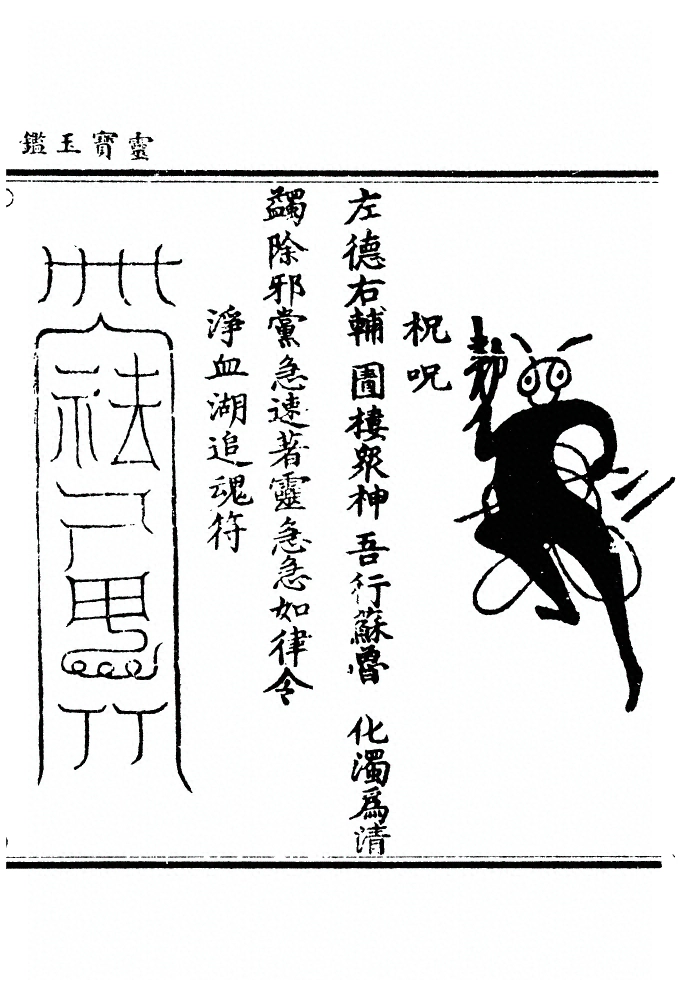 靈寶玉鑑
祝呪
左德右輔 圊樓眾神 吾行蘇魯 化濁爲清
蠲除邪黨急速著靈急急如律令
淨血湖追魂符